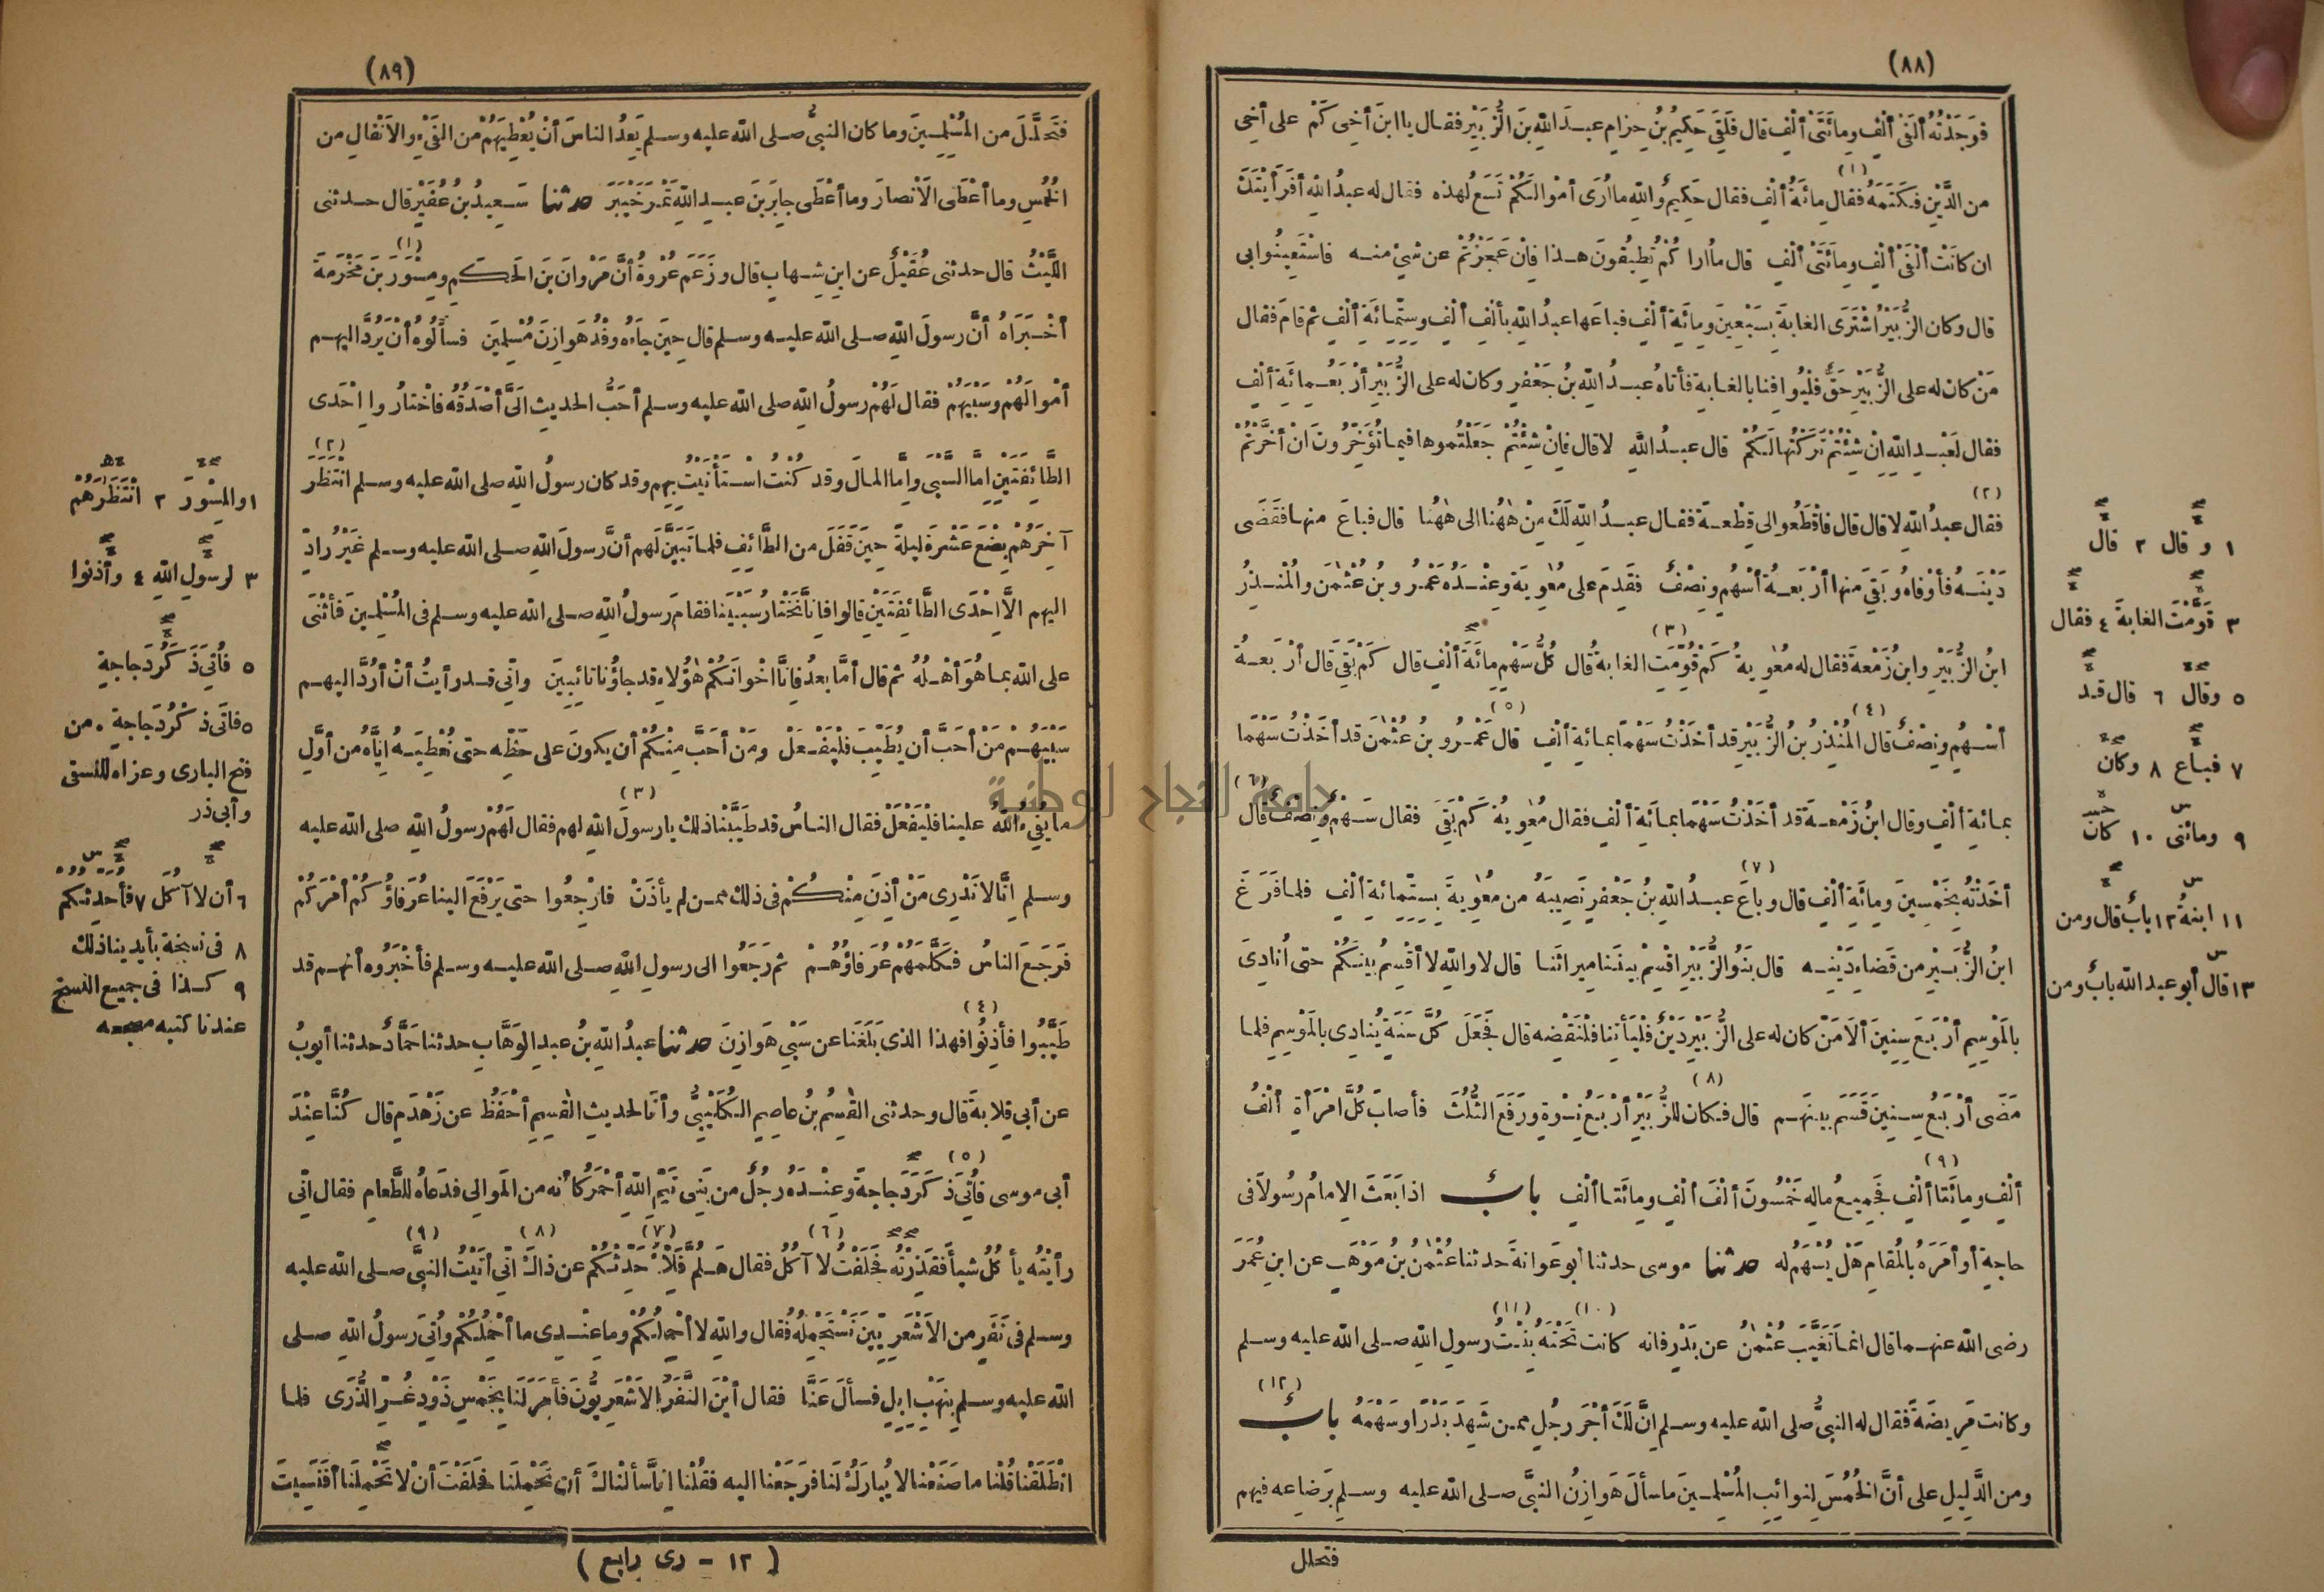 (٨٨)
فوجدته ألفى ألف ومائتى ألف قال فلقى حكيم بن حزام عبد الله بن الزبير فقال يا ابن أخى كم على أخى
من الدين فكتمه فقال مائة ألف فقال حكيم والله ما أرى أموالكم تسع لهذه فقال له عبد الله أفرأيتك
ان كانت ألفى ألف ومائتى ألف قال ما أراكم تطيقون هذا فان عجزتم عن شئ منه فاستعينوا بى
قال وكان الزبير اشترى الغابة بسبعين ومائة ألف فباعها عبد الله بألف ألف وستمائة ألف ثم قام فقال
من كان له على الزبير حق فليوافنا بالغابة فأتاه عبد الله بن جعفر وكان له على الزبير أربعمائة ألف
فقال لعبد الله ان شئتم تركتها لكم قال عبد الله لا قال فان شئتم جعلتموها فيما تؤخرون ان أخرتم
فقال عبد الله لا قال قال فاقطعوا لى قطعة فقال عبد الله لك من ههنا الى ههنا قال فباع منها فقضى
دينه فأوفاه وبقى منها أربعة أسهم ونصف فقدم على معوية وعنده عمرو بن عثمن والمنذر
ابن الزبير وابن زمعة فقال له معوية كم قومت الغابة قال كل سهم مائة ألف قال كم بقى قال أربعة
أسهم ونصف قال المنذر بن الزبير قد أخذت سهما بمائة ألف قال عمرو بن عثمن قد أخذت سهما
بمائة ألف وقال ابن زمعة قد أخذت سهما بمائة ألف فقال معوية كم بقى فقال سهم ونصف قال
أخذته بخمسين ومائة ألف قال وباع عبد الله بن جعفر نصيبه من معوية بستمائة ألف فلما فرغ
ابن الزبير من قضاء دينه قال بنو الزبير اقسم بيننا ميراثنا قال لا والله لا أقسم بينكم حتى أنادى
بالموسم أربع سنين ألا من كان له على الزبير دين فليأتنا فلنقضه قال فجعل كل سنة ينادى بالموسم فلما
مضى أربع سنين قسم بينهم قال فكان للزبير أربع نسوة ورفع الثلث فأصاب كل امرأة ألف
ألف ومائتا ألف فجميع ماله خمسون ألف ألف ومائتا ألف باب اذا بعث الامام رسولا فى
حاجة أو أمره بالمقام هل يسهم له حدثنا موسى حدثنا أبو عوانة حدثنا عثمن بن موهب عن ابن عمر
رضى الله عنهما قال انما تغيب عثمن عن بدر فانه كانت تحته بنت رسول الله صلى الله عليه وسلم
وكانت مريضة فقال له النبى صلى الله عليه وسلم ان لك أجر رجل ممن شهد بدرا وسهمه باب
ومن الدليل على أن الخمس لنوائب المسلمين ما سأل هوازن النبى صلى الله عليه وسلم برضاعه فيهم
فتحلل
١ وقال ٢ قال
٣ قومت الغابة ٤ فقال
٥ وقال ٦ قال قد
٧ فباع ٨ وكان
٩ ومائتى ١٠ كان
١١ ابنة ١٢ باب قال ومن
١٣ قال أبو عبد الله باب ومن
(٨٩)
فتحلل من المسلمين وما كان النبى صلى الله عليه وسلم يعد الناس أن يعطيهم من الفىء والانفال من
الخمس وما أعطى الانصار وما أعطى جابر بن عبد الله تمر خيبر حدثنا سعيد بن عفير قال حدثنى
الليث قال حدثنى عقيل عن ابن شهاب قال وزعم عروة أن مروان بن الحكم ومسور بن مخرمة
أخبراه أن رسول الله صلى الله عليه وسلم قال حين جاءه وفد هوازن مسلمين فسألوه أن يرد اليهم
أموالهم وسبيهم فقال لهم رسول الله صلى الله عليه وسلم أحب الحديث الى أصدقه فاختاروا احدى
الطائفتين اما السبى واما المال وقد كنت استأنيت بهم وقد كان رسول الله صلى الله عليه وسلم انتظر
آخرهم بضع عشرة ليلة حين قفل من الطائف فلما تبين لهم أن رسول الله صلى الله عليه وسلم غير راد
اليهم الا احدى الطائفتين قالوا فانا نختار سبينا فقام رسول الله صلى الله عليه وسلم فى المسلمين فأثنى
على الله بما هو أهله ثم قال أما بعد فان اخوانكم هؤلاء قد جاؤنا تائبين وانى قد رأيت أن أرد اليهم
سبيهم من أحب أن يطيب فليفعل ومن أحب منكم أن يكون على حظه حتى نعطيه اياه من أول
ما يفىء الله علينا فليفعل فقال الناس قد طيبنا ذلك يا رسول الله لهم فقال لهم رسول الله صلى الله عليه
وسلم انا لا ندرى من أذن منكم فى ذلك ممن لم يأذن فارجعوا حتى يرفع الينا عرفاؤكم أمركم
فرجع الناس فكلمهم عرفاؤهم ثم رجعوا الى رسول الله صلى الله عليه وسلم فأخبروه أنهم قد
طيبوا فأذنوا فهذا الذى بلغنا عن سبى هوازن حدثنا عبد الله بن عبد الوهاب حدثنا حماد حدثنا أيوب
عن أبى قلابة قال وحدثنى القسم بن عاصم الكليبى وأنا لحديث القسم أحفظ عن زهدم قال كنا عند
أبى موسى فأتى ذكر دجاجة وعنده رجل من بنى تيم الله أحمر كأنه من الموالى فدعاه للطعام فقال انى
رأيته يأكل شيأ فقذرته فحلفت لا آكل فقال هلم فلأحدثكم عن ذاك انى أتيت النبى صلى الله عليه
وسلم فى نفر من الاشعريين نستحمله فقال والله لا أحملكم وما عندى ما أحملكم وأتى رسول الله صلى
الله عليه وسلم بنهب ابل فسأل عنا فقال أين النفر الاشعريون فأمر لنا بخمس ذود غر الذرى فلما
انطلقنا قلنا ما صنعنا لا يبارك لنا فرجعنا اليه فقلنا انا سألناك أن تحملنا فحلفت أن لا تحملنا أفنسيت
(١٢ - رى رابع)
١ والمسور ٢ انتظرهم
٣ لرسول الله ٤ وأذنوا
٥ فأتى ذكر دجاجة
٥ فأتى ذكر دجاجة . من
فتح البارى وعزاه للنسفى
وأبى ذر
٦ أن لا آكل ٧ فأحدثكم
٨ فى نسخة بأيدينا ذلك
٩ كذا فى جميع النسخ
عندنا كتبه مصححه
جامعة النجاح الوطنية